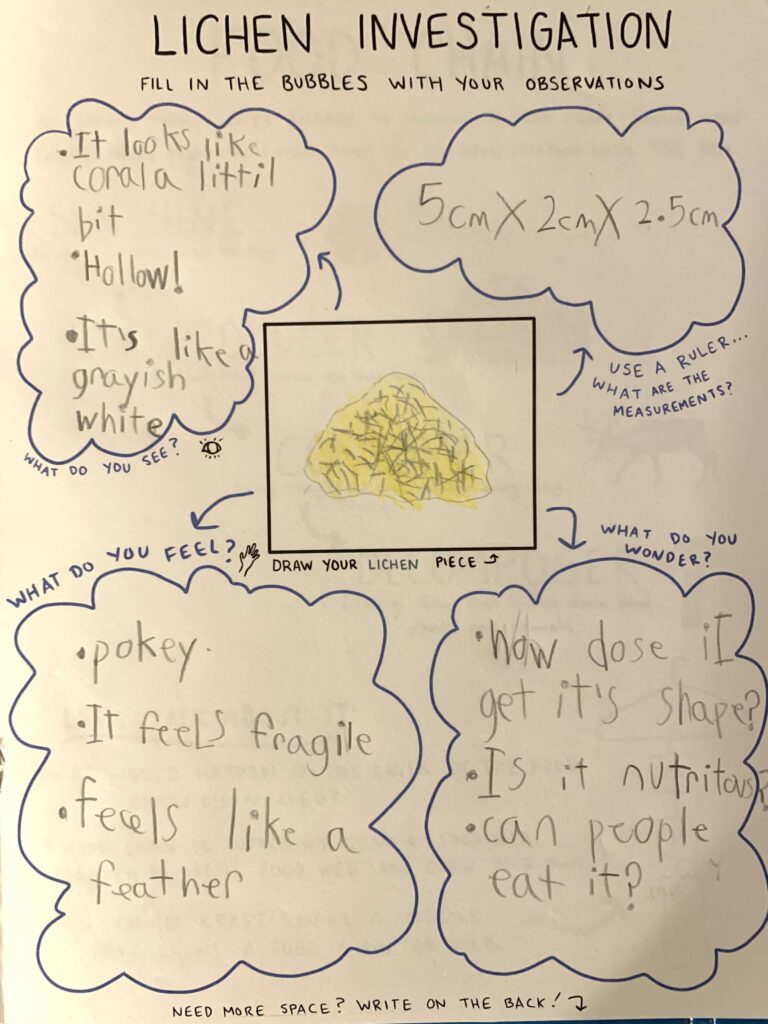 LICHEN INVESTIGATION
FILL IN THE BUBBLES WITH YOUR OBSERVATIONS
• It looks like
coral a littil
bit
• Hollow!
• It's like a
grayish
white
WHAT DO YOU SEE?
5cm X 2cm X 2.5cm
USE A RULER...
WHAT ARE THE
MEASUREMENTS?
DRAW YOUR LICHEN PIECE
WHAT DO YOU FEEL?
• pokey.
• It feels fragile
• feels like a
feather
WHAT DO YOU
WONDER?
• how dose it
get it's shape?
• Is it nutritous?
• can people
eat it?
NEED MORE SPACE? WRITE ON THE BACK!